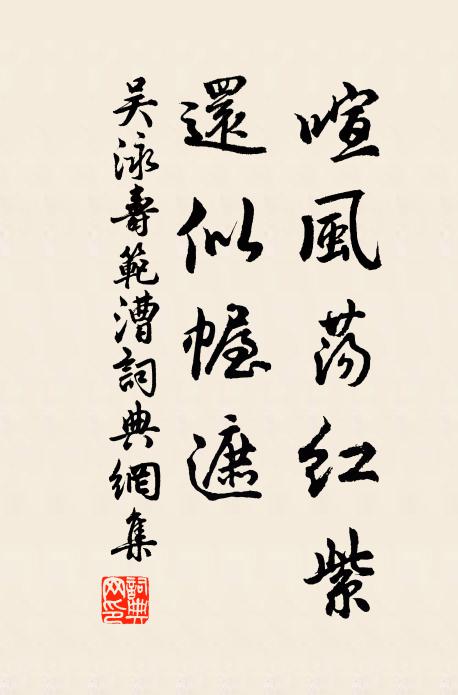 喧風蕩紅紫
還似幄遮
吳泳壽範漕詞典網集
詞典网印